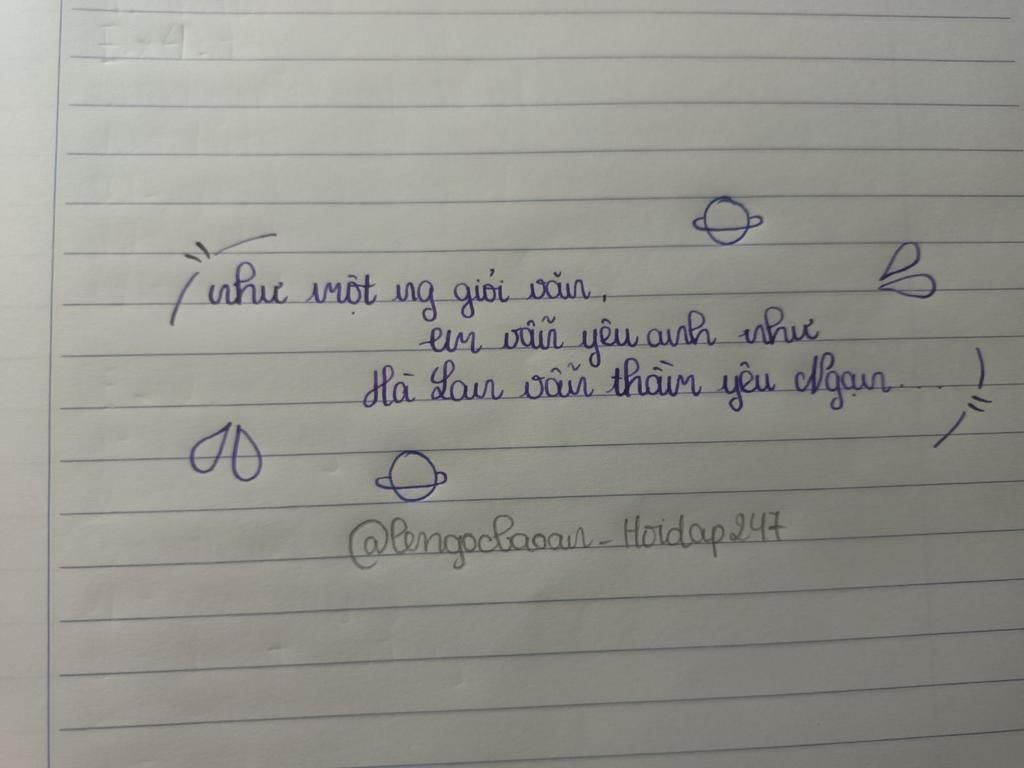 như một ng giỏi văn,
em vẫn yêu anh như
Hà Lan vẫn thầm yêu Ngạn....
@lengocbaoan_Hoidap247